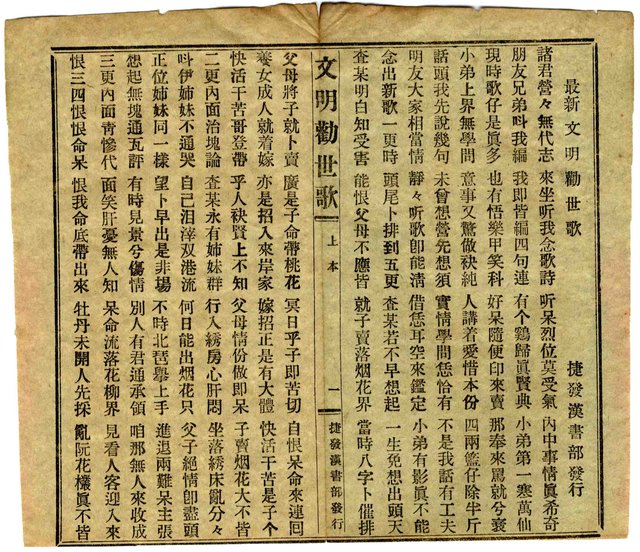 最新文明勸世歌 捷發漢書部發行
諸君營々無代志 來坐听我念歌詩 听呆烈位莫受氣 內中事情眞希奇
朋友兄弟呌我編 我即皆編四句連 有个鷄歸眞賢典 小弟第一寒萬仙
現時歌仔是眞多 也有悟樂甲笑科 好呆隨便印來賣 那奉來罵就兮衰
小弟上界無學問 意事又驚做袂純 人講着愛惜本份 四兩籃仔除半斤
話頭我先說幾句 未曾想營先想須 實情學問恁恰有 不是我話有工夫
明友大家相當情 靜々听歌卽能淸 借恁耳空來鑑定 小弟有影眞不能
念出新歌一更時 頭尾卜排到五更 查某若不早想起 一生免想出頭天
查某明白知受害 能恨父母不應皆 就子賣落烟花界 當時八字卜催排
文明勸世歌 上本 一 捷發漢書部發行
父母將子就卜賣 廣是子命帶桃花 冥日乎子即苦切 自恨呆命來連回
養女成人就着嫁 亦是招入來岸家 嫁招正是有大體 快活干苦是子个
快活干苦哥登帶 乎人袂賢上不知 父母情份做即呆 子賣烟花大不皆
二更內面治塊論 查某永有姉妹群 行入綉房心肝悶 坐落綉床亂分々
呌伊姉妹不通哭 自己汨滓双港流 何日能出烟花只 父子絕情卽盡頭
正位姉妹同一樣 望卜早出是非場 不時北琶擧上手 進退兩難呆主張
想起無塊通瓦評 有時見景兮傷情 別人有君通承領 咱那無人來收成
三更內面靑慘代 面笑肝憂無人知 呆命流落花柳界 見看人客迎入來
恨三四恨恨命呆 恨我命底帶出來 牡丹未開人先採 亂阮花欉眞不皆